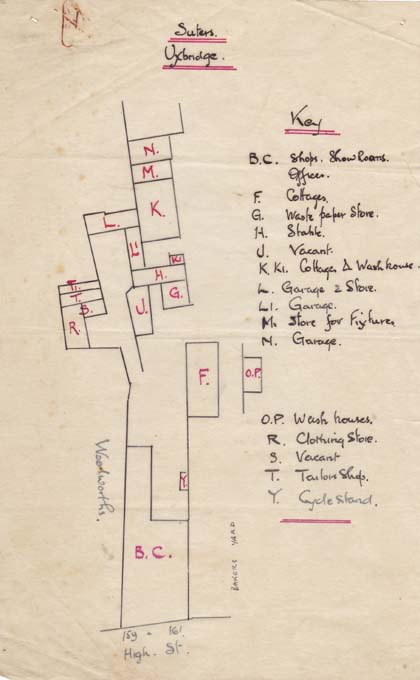 7
Suters.
Uxbridge.
Key
B.C. Shops. Show Rooms.
Offices.
F. Cottages.
G. Waste paper Store.
H. Stable.
J. Vacant.
K K1. Cottage & Washhouse.
L. Garage & Store.
L1. Garage.
M. Store for Fixtures
N. Garage.
O.P. Wash houses.
R. Clothing Store.
S. Vacant
T. Tailors Shop.
Y. Cycle Stand.
N.
M.
K.
L.
L1
K1
H.
G.
J.
T1.
T.
S.
R.
F.
O.P.
Y.
B.C.
Woolworths.
BAKERS YARD
159 - 161.
High. St.